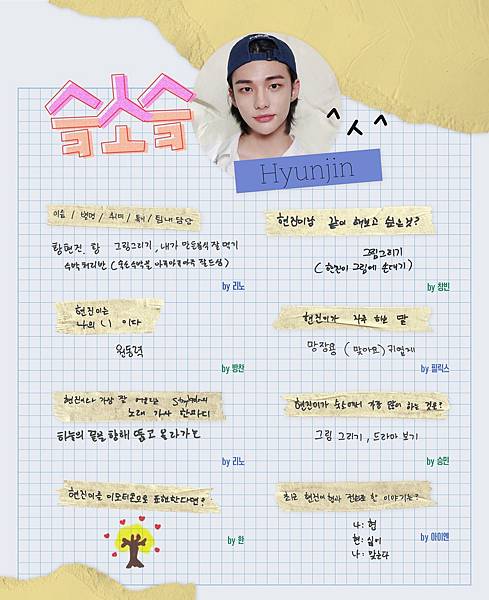 슼소슼
^ㅅ^
Hyunjin
이름 / 별명 / 취미 / 특기 / 팀내 담당
황현진. 황 그림그리기, 내가 만든음식 잘 먹기
by 리노
현진이랑 같이 해보고 싶은것?
그림그리기
(현진이 그림에 손대기)
by 창빈
현진이는
나의 ( ) 이다
원동력
by 방찬
현진이가 자주 하는 말
망장용 (맞아요) 귀엽게
by 필릭스
현진이와 가장 잘 어울리는 Stray Kids의
노래 가사 한마디
하늘의 끝을 향해 뚫고 올라가는
by 리노
현진이가 숙소에서 가장 많이 하는 것은?
그림 그리기, 드라마 보기
by 승민
현진이를 이모티콘으로 표현한다면?
by 한
최근 현진이 형과 전화로 한 이야기는?
나: 형
현: 싫어
나: 맞는다
by 아이엔